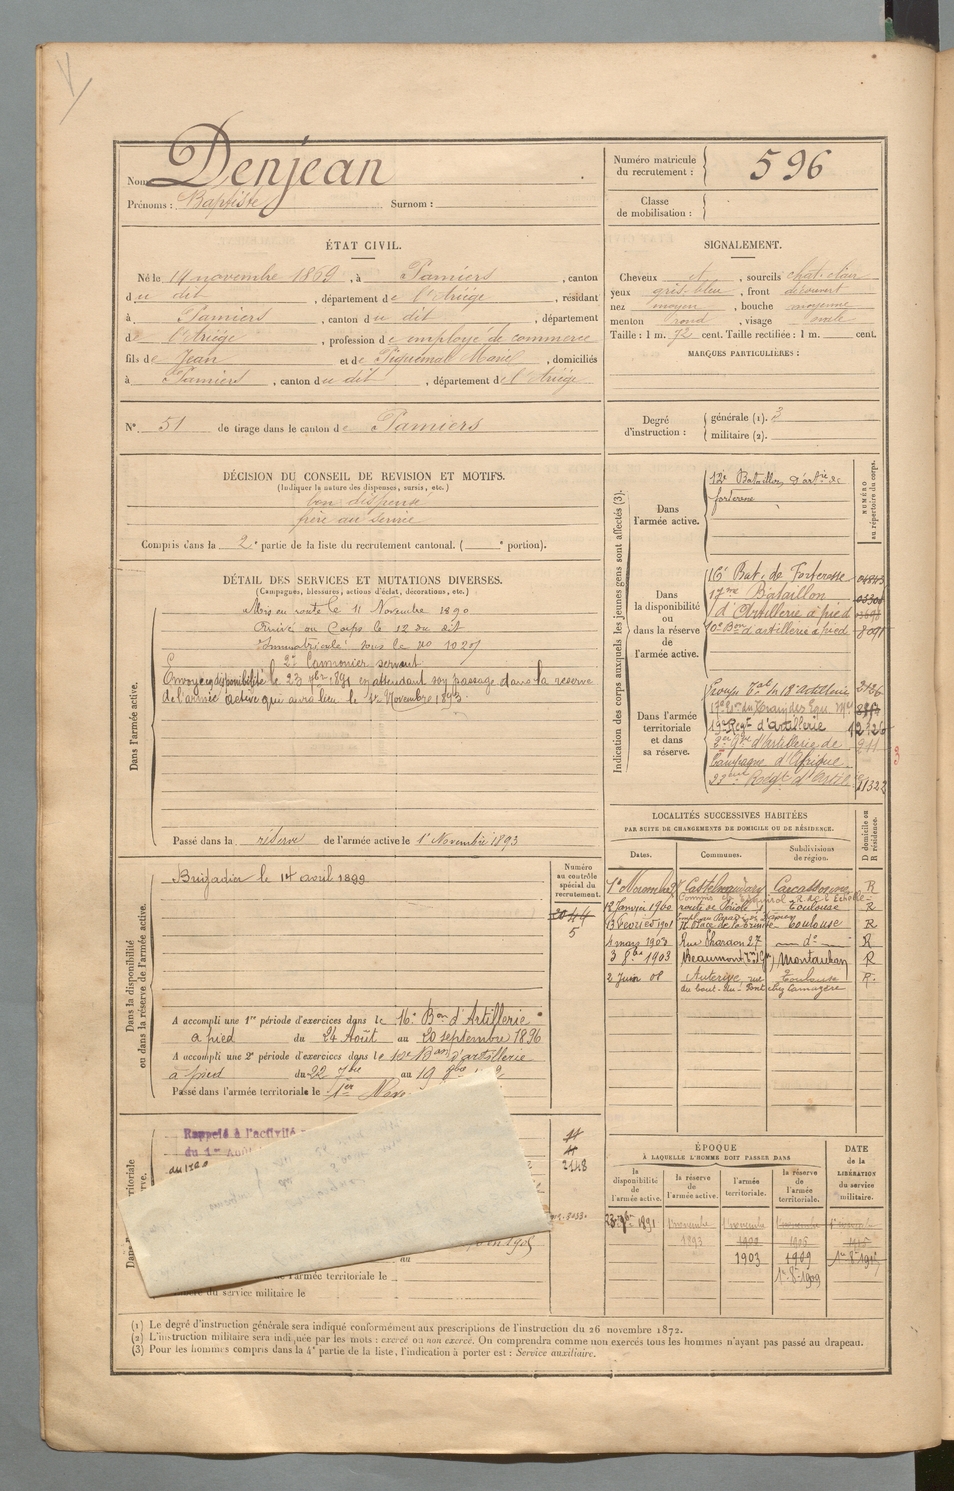 Nom Denjean
Prénoms : Baptiste Surnom :
ÉTAT CIVIL.
Né le 14 novembre 1869, à Pamiers, canton
du dit, département de l'Ariége, résidant
à Pamiers, canton du dit, département
de l'Ariége, profession de employé de commerce
fils de Jean et de Piquemal Marie, domiciliés
à Pamiers, canton du dit, département de l'Ariége
N° 51 de tirage dans le canton de Pamiers
DÉCISION DU CONSEIL DE REVISION ET MOTIFS.
(Indiquer la nature des dispenses, sursis, etc.)
bon dispensé
frère au service
Compris dans la 2e partie de la liste du recrutement cantonal. ( e portion).
DÉTAIL DES SERVICES ET MUTATIONS DIVERSES.
(Campagnes, blessures, actions d'éclat, décorations, etc.)
Dans l'armée active.
Mis en route le 11 Novembre 1890
Arrivé au Corps le 12 du dit
Immatriculé sous le no 1027
2e Canonnier servant
Envoyé en disponibilité le 23 7bre 1891 en attendant son passage dans la réserve
de l'armée active qui aura lieu le 1er Novembre 1893.
Passé dans la réserve de l'armée active le 1er Novembre 1893
Dans la disponibilité
ou dans la réserve de l'armée active.
Numéro
au contrôle
spécial du
recrutement.
Brigadier le 14 avril 1899
2044
5
A accompli une 1re période d'exercices dans le 16e Bon d'Artillerie
à pied du 24 Août au 20 septembre 1896
A accompli une 2e période d'exercices dans le Bon d'artillerie
à pied du 22 7bre au 19 8bre
Passé dans l'armée territoriale le 1er Nov
Rappelé à l'activité
du 1er Août
2148
de l'armée territoriale le
du service militaire le
Numéro matricule
du recrutement : 596
Classe
de mobilisation :
SIGNALEMENT.
Cheveux et, sourcils chat. clair
yeux gris-bleu, front découvert
nez moyen, bouche moyenne
menton rond, visage ovale
Taille : 1 m. 72 cent. Taille rectifiée : 1 m. cent.
MARQUES PARTICULIÈRES :
Degré
d'instruction :
générale (1). 3
militaire (2).
Indication des corps auxquels les jeunes gens sont affectés (3).
NUMÉRO
au répertoire du corps.
Dans
l'armée active.
12e Bataillon d'artie de
forteresse
Dans
la disponibilité
ou
dans la réserve
de
l'armée active.
16e Bat. de Forteresse
17me Bataillon
d'Artillerie à pied
10e Bon d'artillerie à pied 8091
Dans l'armée
territoriale
et dans
sa réserve.
Groupe Tal du 18e Artillerie
17e Eon du Train des Equ. Mres
19e Regt d'artillerie 12426
3e Gpe d'Artillerie de 211
Campagne d'Afrique.
23me Regt d'Artie 21322
LOCALITÉS SUCCESSIVES HABITÉES
PAR SUITE DE CHANGEMENTS DE DOMICILE OU DE RÉSIDENCE.
D domicile ou
R résidence.
Dates. Communes. Subdivisions
de région.
Castelnaudary Carcassonne R
12 Janvier 1900 Toulouse R
13 Fevrier 1901 Toulouse R
4 mars 1903 Rue Chardon 27 do R
3 8bre 1903 Beaumont Montauban R
2 Juin 08 Auterive, rue Toulouse R.
du bout-du-Pont chez Camazère
ÉPOQUE
À LAQUELLE L'HOMME DOIT PASSER DANS
DATE
de la
LIBÉRATION
du service
militaire.
la
disponibilité
de
l'armée active.
la réserve
de
l'armée active.
l'armée
territoriale.
la réserve
de
l'armée
territoriale.
23 7bre 1891 1er novembre 1er novembre
1893
1903 1909
1er 8bre 1909
(1) Le degré d'instruction générale sera indiqué conformément aux prescriptions de l'instruction du 26 novembre 1872.
(2) L'instruction militaire sera indiquée par les mots : exercé ou non exercé. On comprendra comme non exercés tous les hommes n'ayant pas passé au drapeau.
(3) Pour les hommes compris dans la 4e partie de la liste, l'indication à porter est : Service auxiliaire.